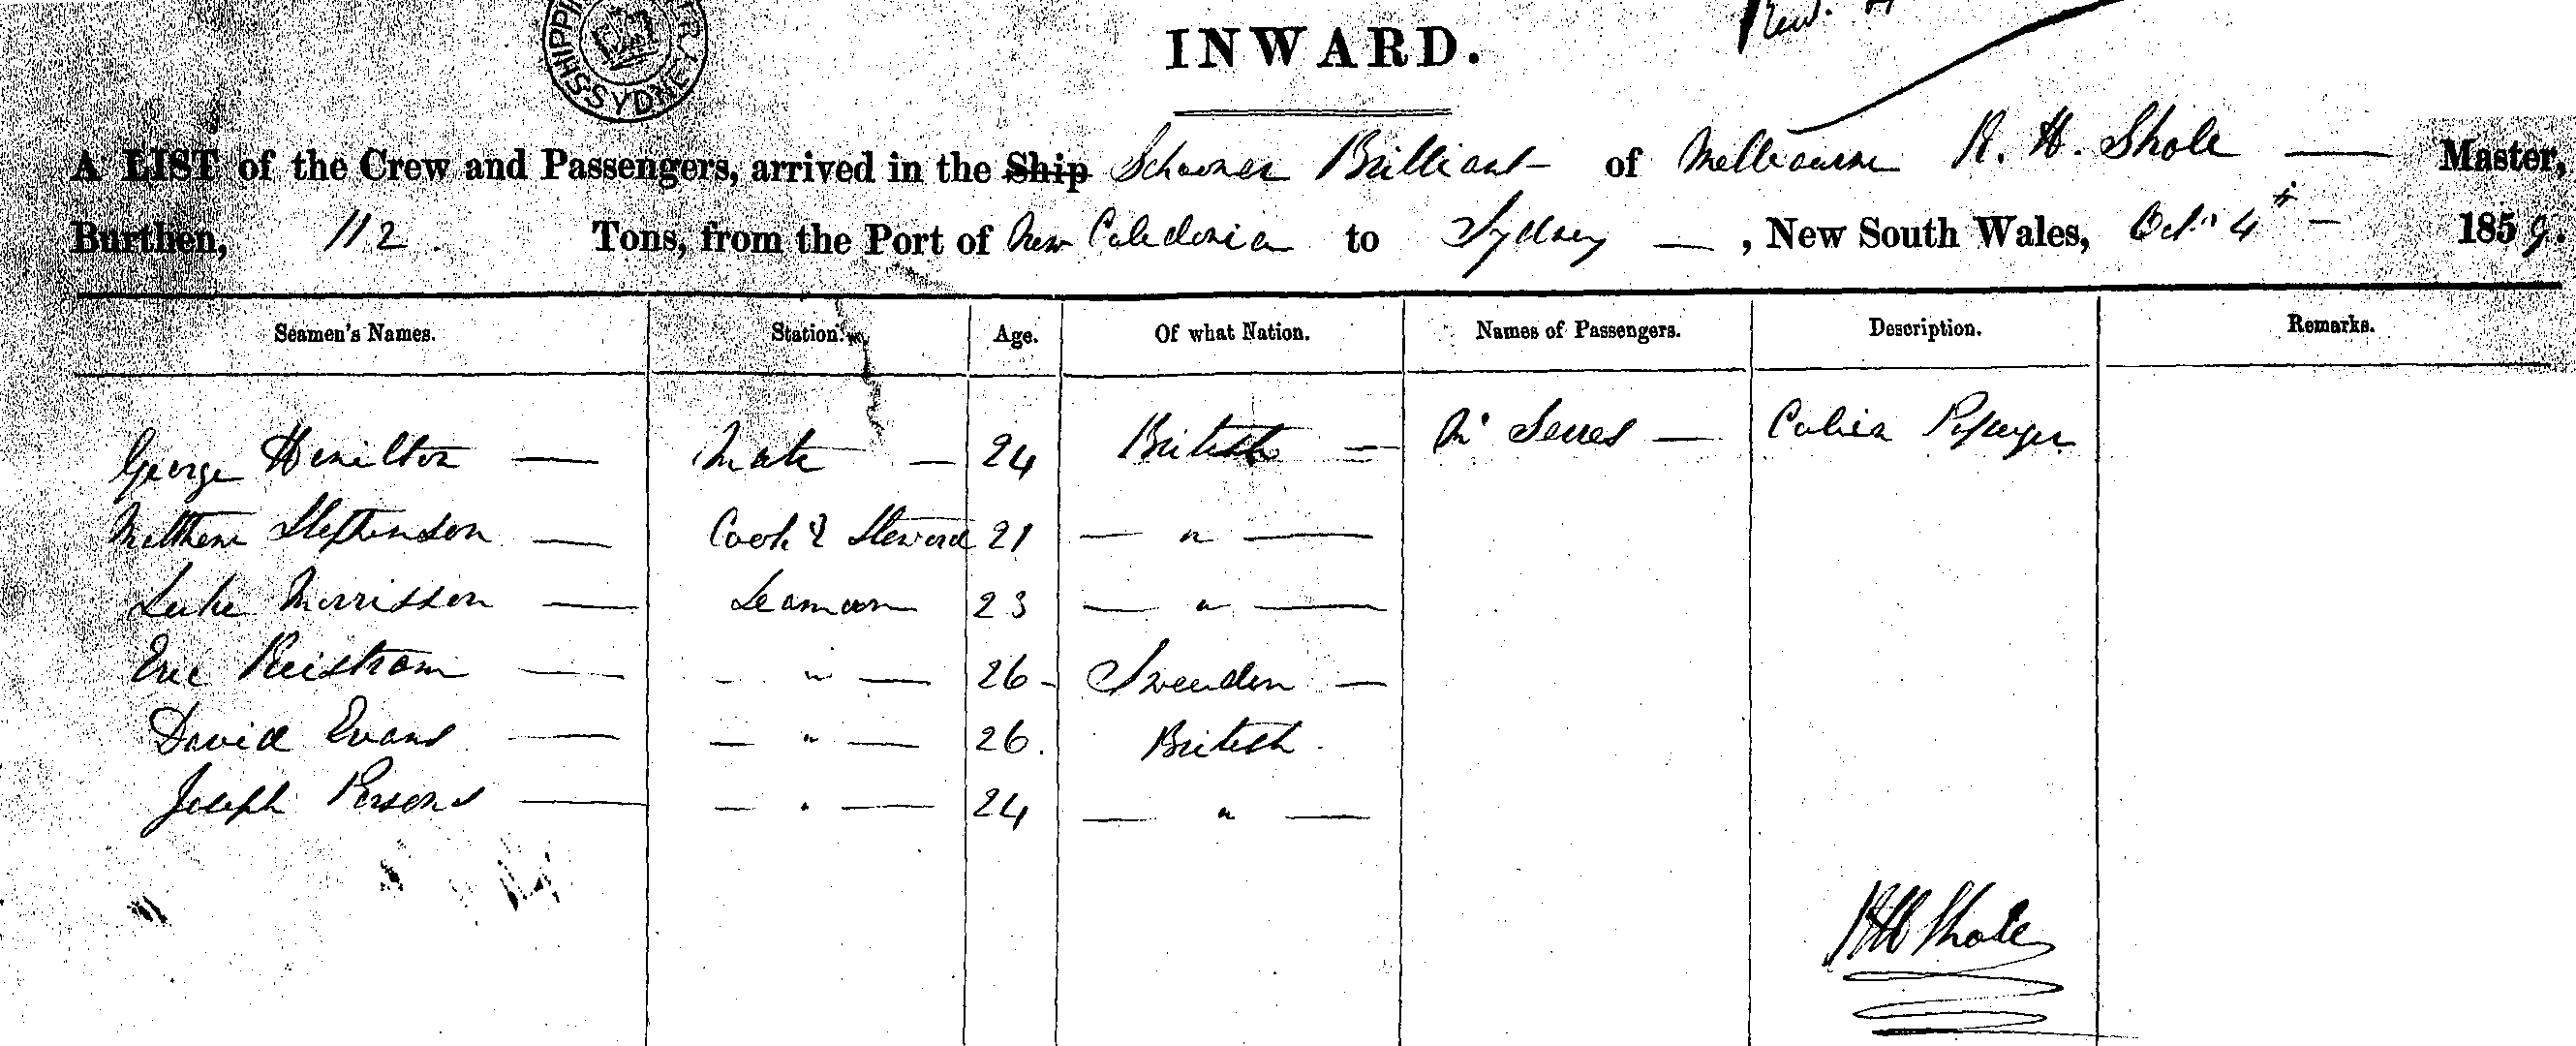 INWARD.
A LIST of the Crew and Passengers, arrived in the Ship Schooner Brilliant of Melbourne R. H. Shole Master,
Burthen, 112. Tons, from the Port of New Caledonia to Sydney, New South Wales, Oct 4 1859.
Seamen's Names. Station. Age. Of what Nation. Names of Passengers. Description. Remarks.
George Hamilton Mate 24 British Mr Serres Cabin Passenger
Matthew Stephenson Cook & Steward 21 "
Luke Morrisson Seaman 23 "
Eric " 26 Sweeden
David Evans " 26. British
Joseph Persons " 24 "
RH Shole